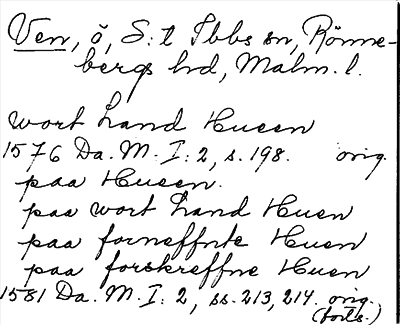 Ven, ö, S:t Ibbs sn, Rönne-
bergs hd, Malm. l.
wort Land Hueen
1576 Da. M. I: 2, s. 198. orig.
paa Hueen.
paa wort Land Huen
paa forneffnte Huen
paa forskreffne Huen
1581 Da. M. I: 2, ss. 213, 214. orig.
(forts.)